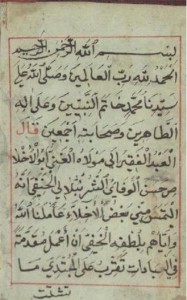 بسم الله الرحمن الرحيم
الحمد لله رب العالمين وصلى الله على
سيدنا محمد خاتم النبيين وعلى اله
الطاهرين وصحابته اجمعين قال
العبد الفقير الى مولاه الغني ابو الاخلا
ص حسن الوفائي الشرنبلالي الحنفي انه
التمس مني بعض الاخلاء عاملنا الله
واياهم بلطفه الخفي ان اعمل مقدمة
في العبادات تقرب على المبتدي ما
تشتت